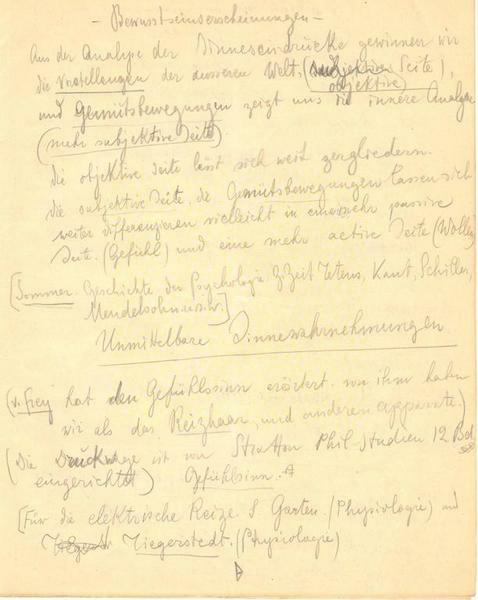 - Bewusstseinserscheinungen -
Aus der Analyse der Sinneseindrücke gewinnen wir
die Vorstellungen der äusseren Welt, (subjektive Seite),
objektive
und Gemütsbewegungen zeigt uns die innere Analyse
(mehr subjektive Seite)
die objektive Seite lässt sich weit zergliedern.
die subjektive Seite, die Gemütsbewegungen lassen sich
weiter differenzieren vielleicht in eine mehr passive
Seite. (Gefühl) und eine mehr active Seite (Wollen)
[Sommer. Geschichte der Psychologie z. Zeit Tetens, Kant, Schiller,
Mendelsohn u.s.w.]
Unmittelbare Sinneswahrnehmungen.
(v. Frey hat den Gefühlssinn erörtert. von ihm haben
wir als das Reizhaar, und anderen apparate.)
(Die Druckwage ist von Stratton Phil. Studien 12 Bd
eingerichtet) Gefühlssinn.
[Für die elektrische Reize. S Garten. (Physiologie) und
Tiegerstedt. (Physiologie)